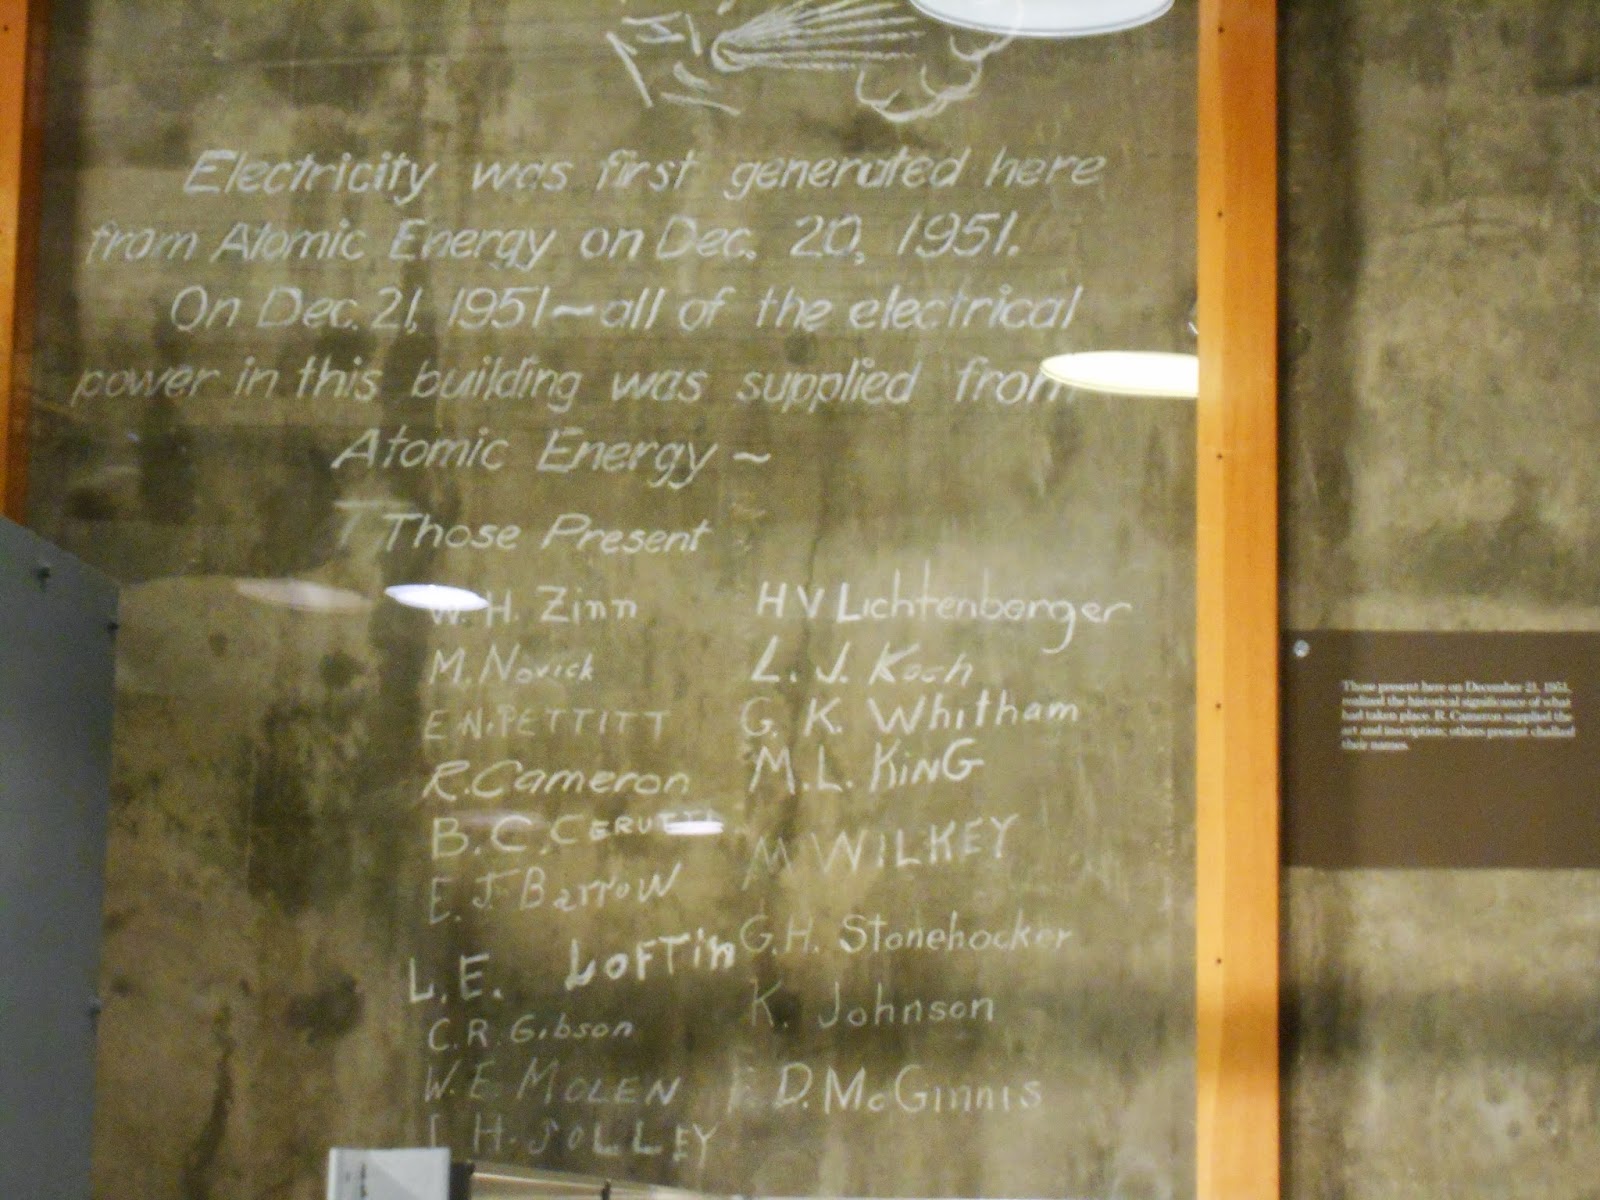 Electricity was first generated here
from Atomic Energy on Dec. 20, 1951.
On Dec. 21, 1951~all of the electrical
power in this building was supplied from
Atomic Energy ~
Those Present
W. H. Zinn
M. Novick
E N. PETTITT
R. Cameron
B. C. CERUTTI
E. J. Barrow
L. E. LOFTin
C. R. Gibson
W. E. MOLEN
H. JOLLEY
H V Lichtenberger
L. J. Koch
G. K. Whitham
M. L. KinG
M WILKEY
G. H. Stonehocker
K. Johnson
D. McGinnis
Those present here on December 21, 1951,
realized the historical significance of what
had taken place. R. Cameron supplied the
art and inscription; others present chalked
their names.